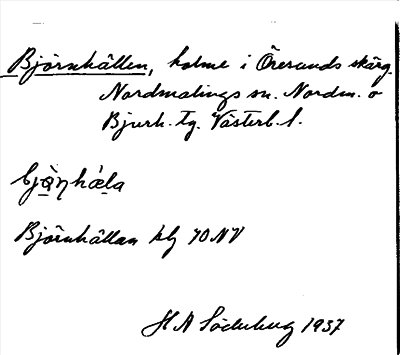 Björnhällen, holme i Öresunds skärg.
Nordmalings sn. Nordm. o
Bjurh. tg. Västerb. l.
Björnhällan blj 70 NV
H A Söderberg 1937